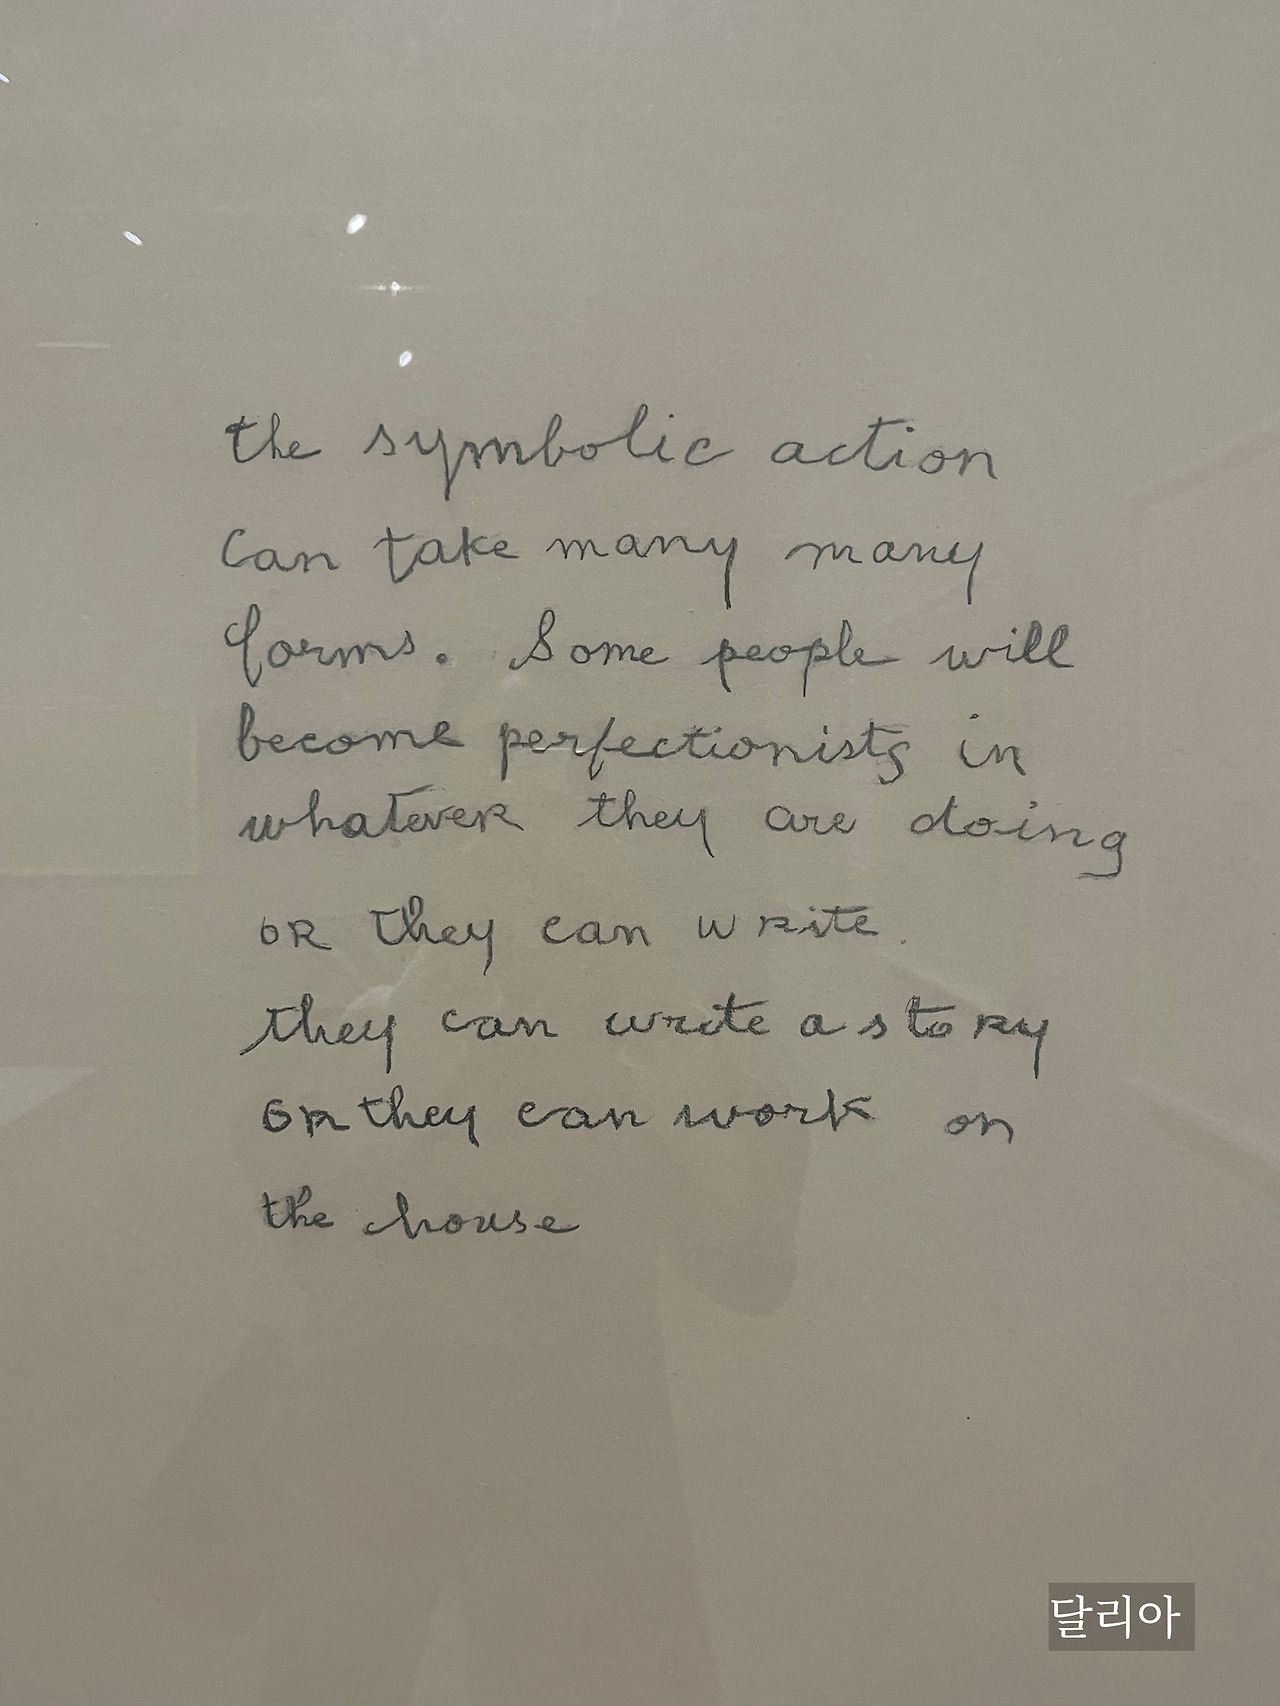 the symbolic action
Can take many many
forms. Some people will
become perfectionists in
whatever they are doing
OR they can write.
they can write a story
OR they can work on
the house
달리아